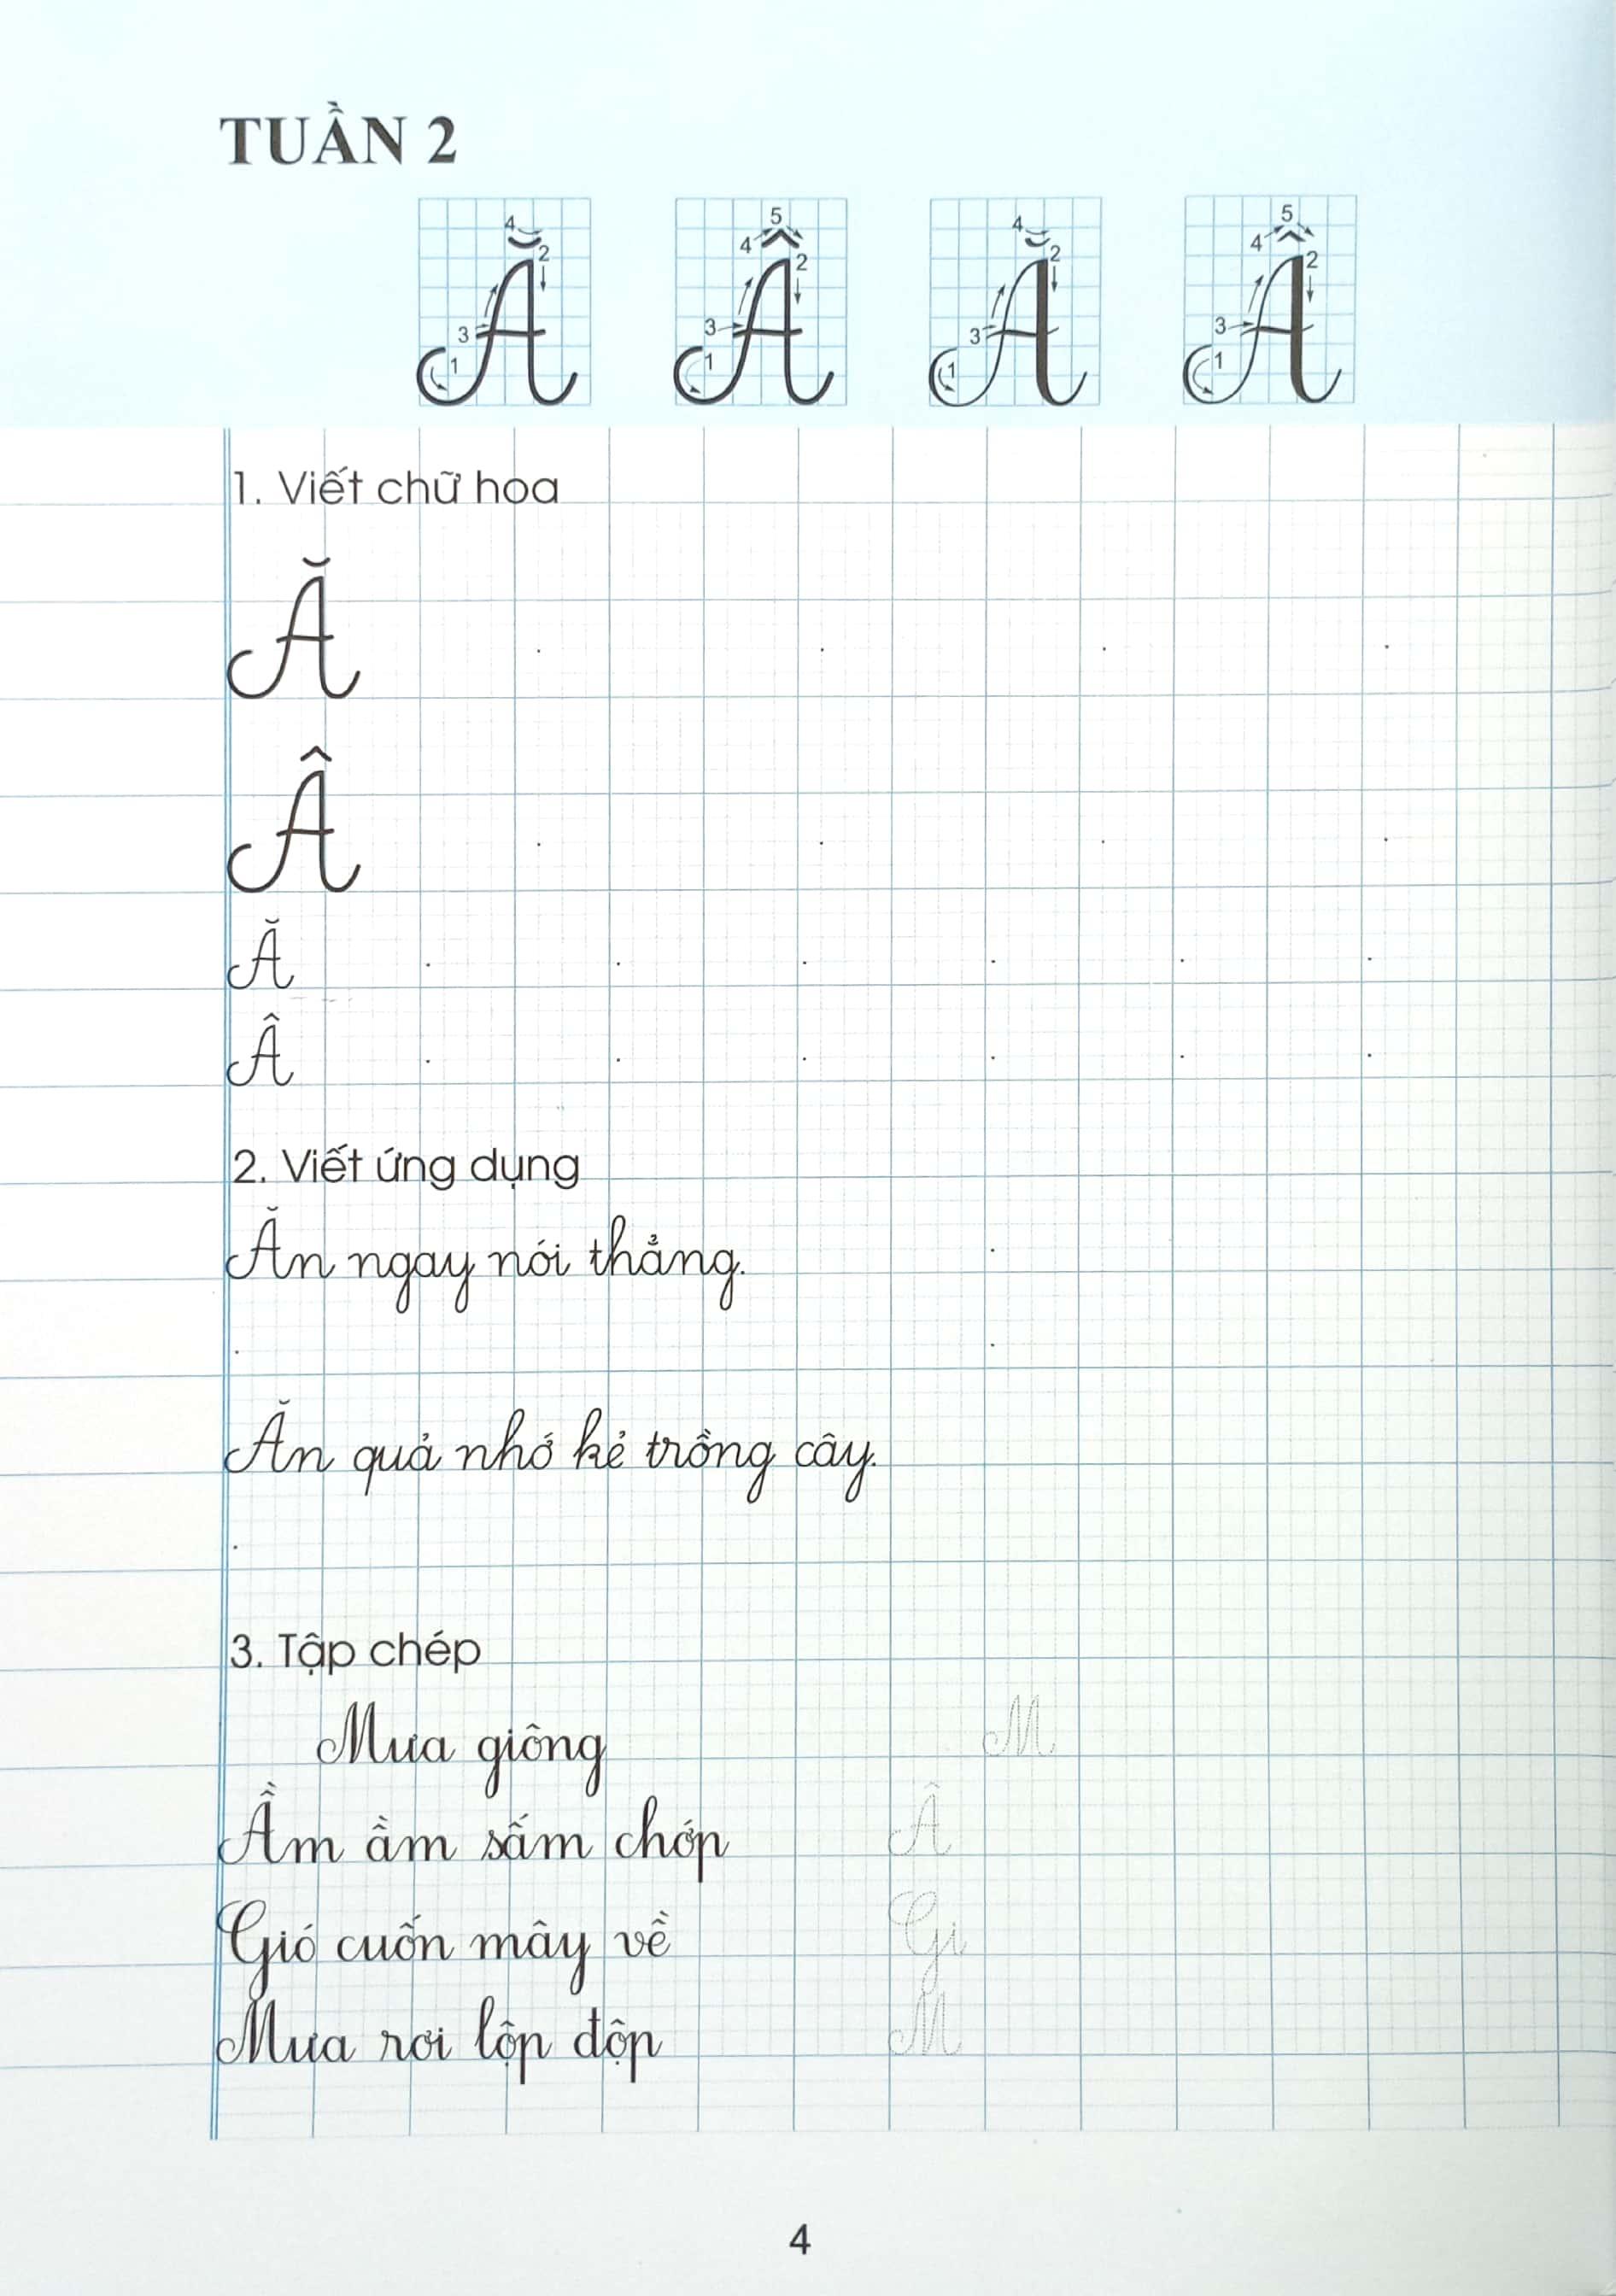 TUẦN 2
4 2 3 1 5 4 2 3 1 4 2 3 1 5 4 2 3 1
Ă Â Ă Â
1. Viết chữ hoa
Ă
Â
Ă
Â
2. Viết ứng dụng
Ăn ngay nói thẳng.
Ăn quả nhớ kẻ trồng cây.
3. Tập chép
Mưa giông M
Ầm ầm sấm chớp Â
Gió cuốn mây về Gi
Mưa rơi lộp độp M
4